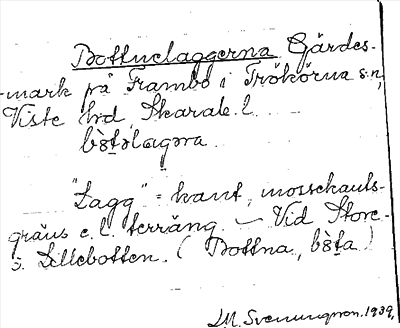 Bottnelaggerna Gärdes-
mark på Frambo i Trökörna s:n,
Viste hrd, Skarab. l.
bòt̤əlagəra
"Lagg" = kant, mossekants-
gräns e. l. terräng. – Vid Store-
o. Lillebotten. (Bottna, bòt̤a)
M. Svenungson. 1939.